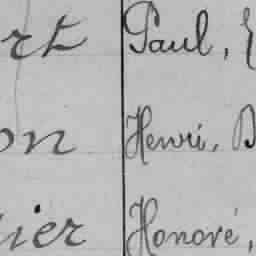 rt Paul, E
on Henri, B
ier Honoré,